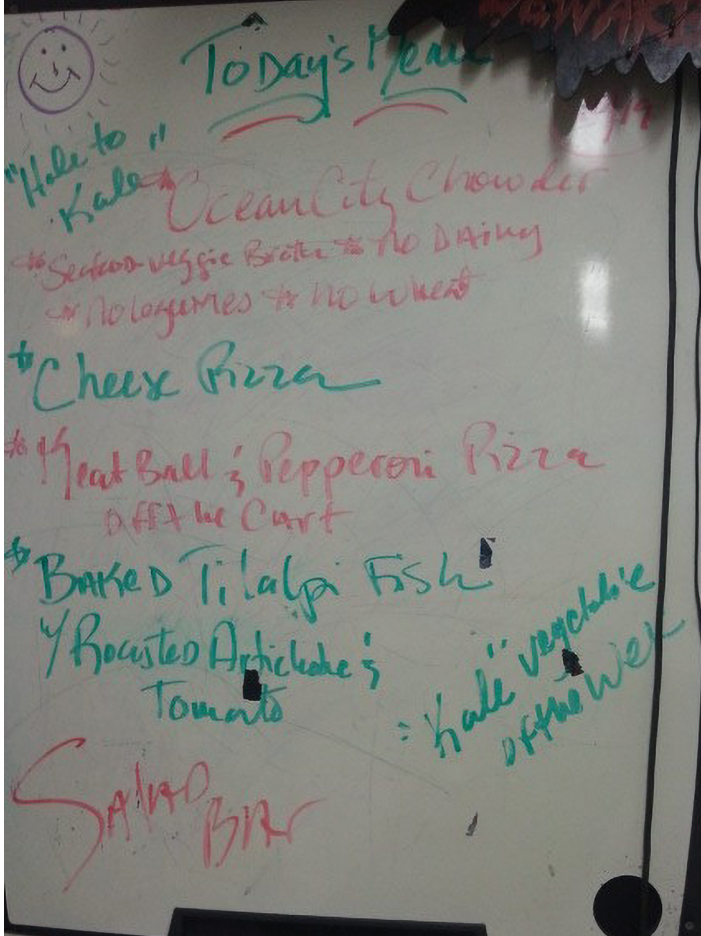 Today's Menu
"Hale to
Kale"
Ocean City Chowder
* Seafood-veggie Broth * No DAiry
* No legumes * No wheat
* Cheese Pizza
* Meat Ball & Pepperoni Pizza
off the Cart
* BAKED Tilalpi Fish
w/ Roasted Artichoke &
Tomato
"Kale" vegetable
of the Week
SALAD
BAr